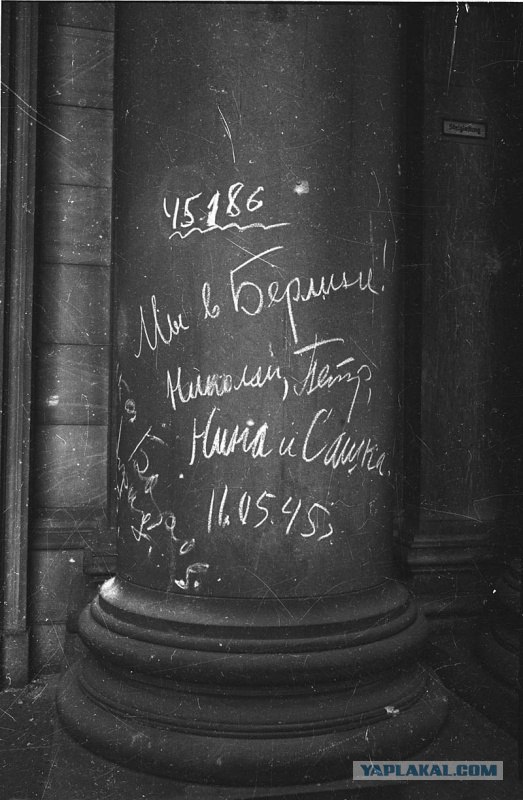 45.186
Мы в Берлине!
Николай, Петр,
Нина и Сашка.
11.05.45г.
YAPLAKAL.COM